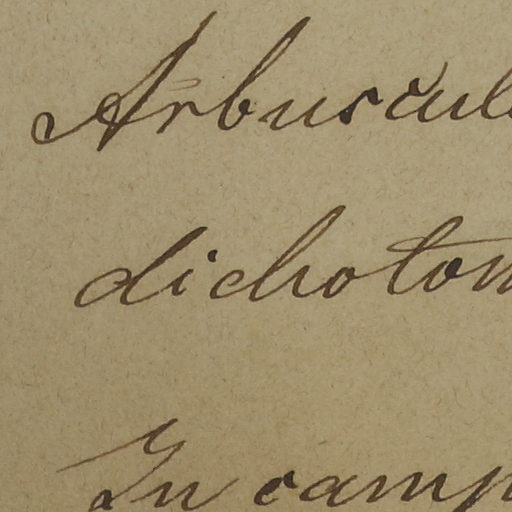 Arbuscul
dichotom
In camp